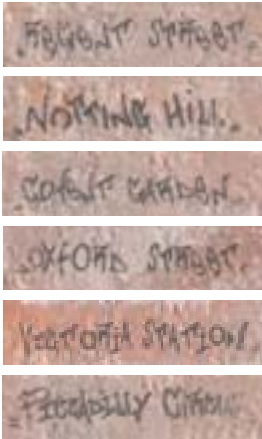 REGENT STREET.
NOTTING HILL.
COVENT GARDEN
OXFORD STREET.
VICTORIA STATION
PICCADILLY CIRCUS